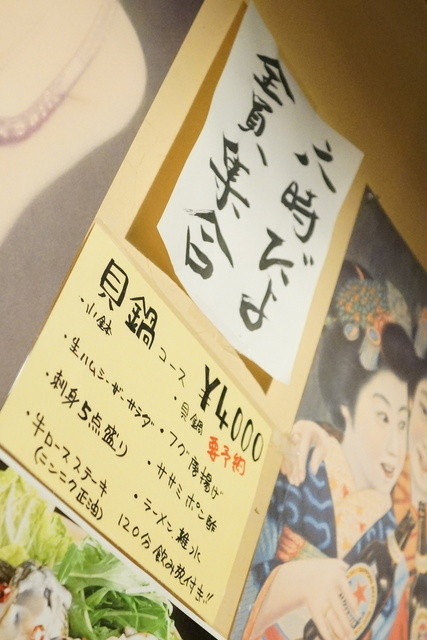 六時だよ
全員、集合
貝鍋コース ¥4000
要予約
・小鉢
・生ハムシーザーサラダ
・刺身5点盛り
・牛ロースステーキ
(ニンニク正油)
・貝鍋
・フグ唐揚げ
・ササミポン酢
・ラーメン雑炊
120分飲み放付き!!